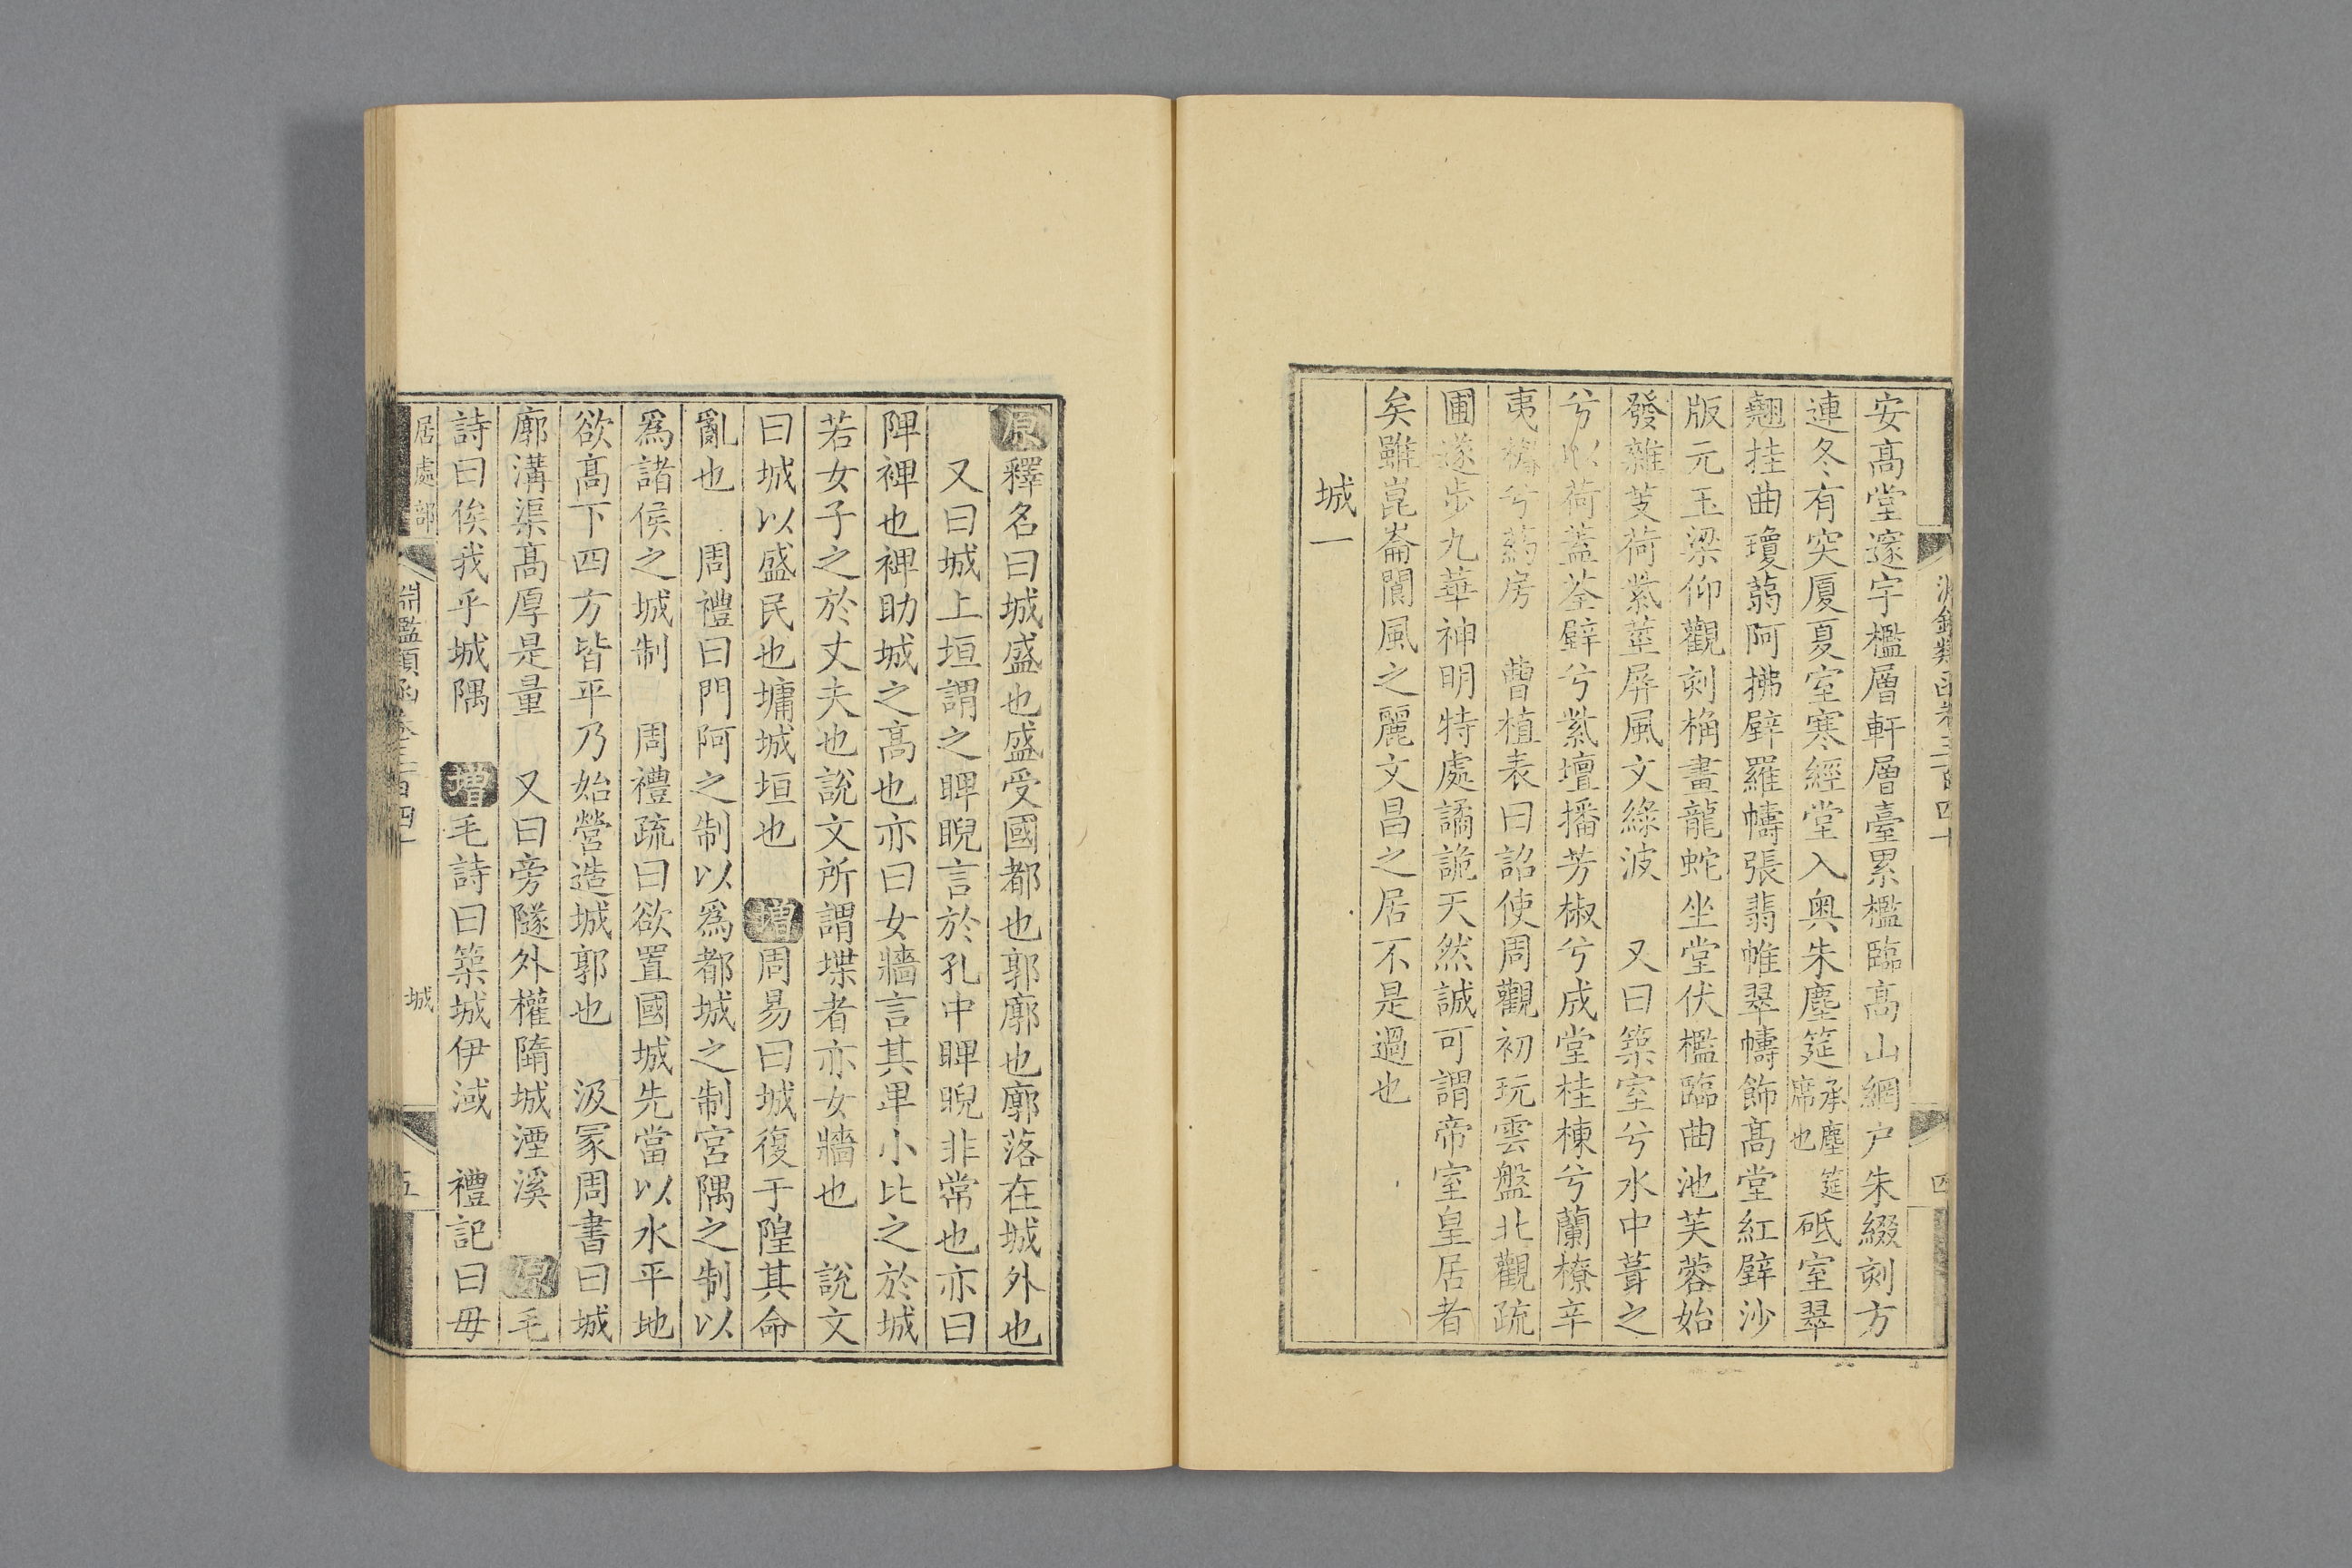 安高堂邃宇檻層軒層臺累檻臨高山網户朱綴刻方
連冬有突厦夏室寒經堂入奥朱塵筵承塵筵席也砥室翠
翹挂曲瓊蒻阿拂壁羅幬張翡帷翠幬飾髙堂紅壁沙
版元玉梁仰觀刻桷畫龍蛇坐堂伏檻臨曲池芙蓉始
發雜芰荷紫莖屏風文綠波　又曰築室兮水中葺之
兮以荷蓋荃壁兮紫壇播芳椒兮成堂桂棟兮蘭橑辛
夷楣兮葯房　曹植表曰詔使周觀初玩雲盤北觀疏
圃遂步九華神明特處譎詭天然誠可謂帝室皇居者
矣雖崑崙閬風之麗文昌之居不是過也
城一
四
原釋名曰城盛也盛受國都也郭廓也廓落在城外也
又曰城上垣謂之睥睨言於孔中睥睨非常也亦曰
陴裨也裨助城之髙也亦曰女牆言其卑小比之於城
若女子之於丈夫也說文所謂堞者亦女牆也　說文
曰城以盛民也墉城垣也　增周易曰城復于隍其命
亂也　周禮曰門阿之制以爲都城之制宮隅之制以
爲諸侯之城制　周禮疏曰欲置國城先當以水平地
欲髙下四方皆平乃始營造城郭也　汲冢周書曰城
廓溝渠髙厚是量　又曰旁隧外權隳城湮溪　原毛
詩曰俟我乎城隅　增毛詩曰築城伊淢　禮記曰毋
居處部
淵鑑類函卷三百四十
城
五